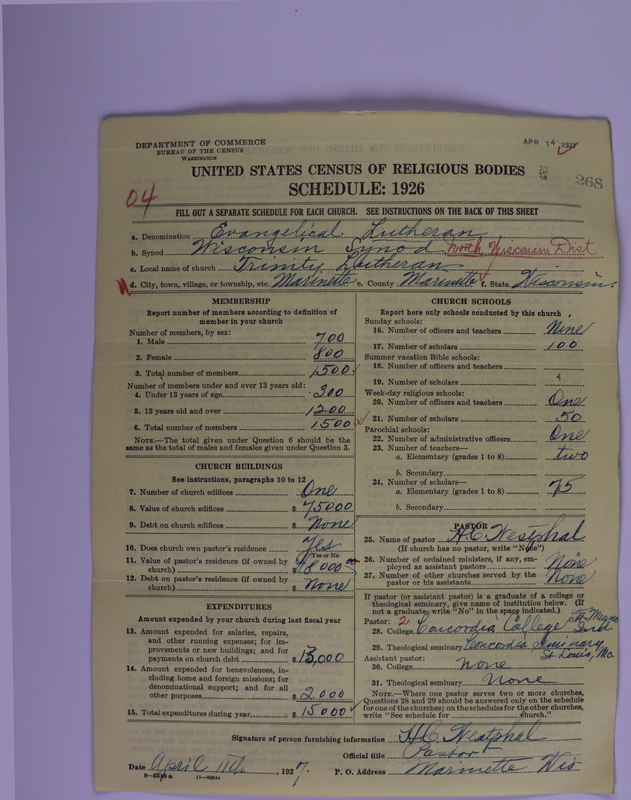 DEPARTMENT OF COMMERCE
BUREAU OF THE CENSUS
WASHINGTON
APR 14 1927
UNITED STATES CENSUS OF RELIGIOUS BODIES
SCHEDULE: 1926
268
04
FILL OUT A SEPARATE SCHEDULE FOR EACH CHURCH. SEE INSTRUCTIONS ON THE BACK OF THIS SHEET
a. Denomination Evangelical Lutheran
b. Synod Wisconsin Synod North Wisconsin Dist
c. Local name of church Trinity Lutheran
d. City, town, village, or township, etc. Marinette e. County Marinette f. State Wisconsin
MEMBERSHIP
Report number of members according to definition of
member in your church
Number of members, by sex:
1. Male 700
2. Female 800
3. Total number of members 1500
Number of members under and over 13 years old:
4. Under 13 years of age 300
5. 13 years old and over 1200
6. Total number of members 1500
NOTE.—The total given under Question 6 should be the
same as the total of males and females given under Question 3.
CHURCH BUILDINGS
See instructions, paragraphs 10 to 12
7. Number of church edifices One
8. Value of church edifices $ 75000
9. Debt on church edifices $ None
10. Does church own pastor's residence Yes
(Yes or No
11. Value of pastor's residence (if owned by
church) $ 8000
12. Debt on pastor's residence (if owned by
church) $ None
EXPENDITURES
Amount expended by your church during last fiscal year
13. Amount expended for salaries, repairs,
and other running expenses; for im-
provements or new buildings; and for
payments on church debt $ 13,000
14. Amount expended for benevolences, in-
cluding home and foreign missions; for
denominational support; and for all
other purposes $ 2000
15. Total expenditures during year $ 15000
CHURCH SCHOOLS
Report here only schools conducted by this church
Sunday schools:
16. Number of officers and teachers Nine
17. Number of scholars 100
Summer vacation Bible schools:
18. Number of officers and teachers
19. Number of scholars
Week-day religious schools:
20. Number of officers and teachers One
21. Number of scholars 50
Parochial schools:
22. Number of administrative officers One
23. Number of teachers—
a. Elementary (grades 1 to 8) two
b. Secondary
24. Number of scholars—
a. Elementary (grades 1 to 8) 75
b. Secondary
PASTOR
25. Name of pastor H.C. Westphal
(If church has no pastor, write "None")
26. Number of ordained ministers, if any, em-
ployed as assistant pastors None
27. Number of other churches served by the
pastor or his assistants None
If pastor (or assistant pastor) is a graduate of a college or
theological seminary, give name of institution below. (If
not a graduate, write "No" in the space indicated.)
Pastor: 2
28. College Concordia College Ft. Wayne Ind
29. Theological seminary Concordia Seminary St. Louis, Mo.
Assistant pastor:
30. College none
31. Theological seminary None
NOTE.—Where one pastor serves two or more churches,
Questions 28 and 29 should be answered only on the schedule
for one of the churches; on the schedules for the other churches,
write "See schedule for church."
Signature of person furnishing information H.C. Westphal
Official title Pastor
Date April 11th, 1927. P. O. Address Marinette Wis